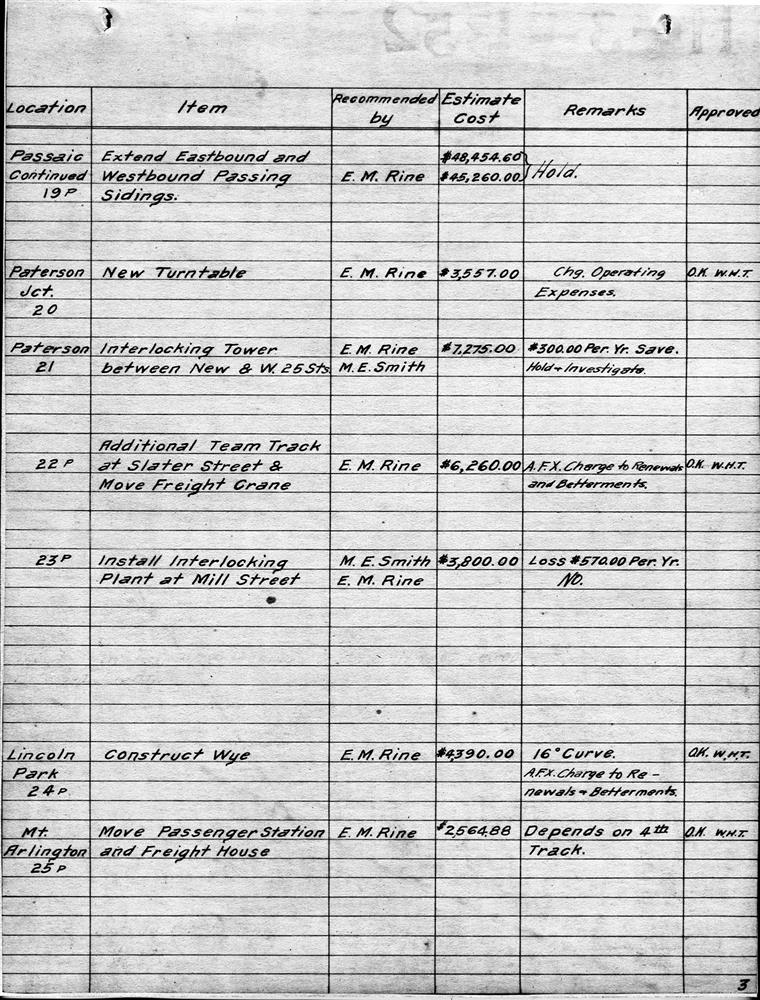 Location Item Recommended by Estimate Cost Remarks Approved
Passaic Extend Eastbound and $48,454.60
Continued Westbound Passing E. M. Rine $45,260.00 } Hold.
19 P Sidings.
Paterson New Turntable E. M. Rine $3,557.00 Chg. Operating O.K. W.H.T.
Jct. Expenses.
20
Paterson Interlocking Tower E. M. Rine $7,275.00 $300.00 Per. Yr. Save.
21 between New & W. 25 Sts. M. E. Smith Hold + Investigate.
Additional Team Track
22 P at Slater Street & E. M. Rine $6,260.00 A.F.X. Charge to Renewals O.K. W.H.T.
Move Freight Crane and Betterments.
23 P Install Interlocking M. E. Smith $3,800.00 Loss $570.00 Per. Yr.
Plant at Mill Street E. M. Rine NO.
Lincoln Construct Wye E. M. Rine $4,390.00 16° Curve. O.K. W.H.T.
Park A.F.X. Charge to Re-
24 P newals + Betterments.
Mt. Move Passenger Station E. M. Rine $2,564.88 Depends on 4th O.K. W.H.T.
Arlington and Freight House Track.
25 P
3